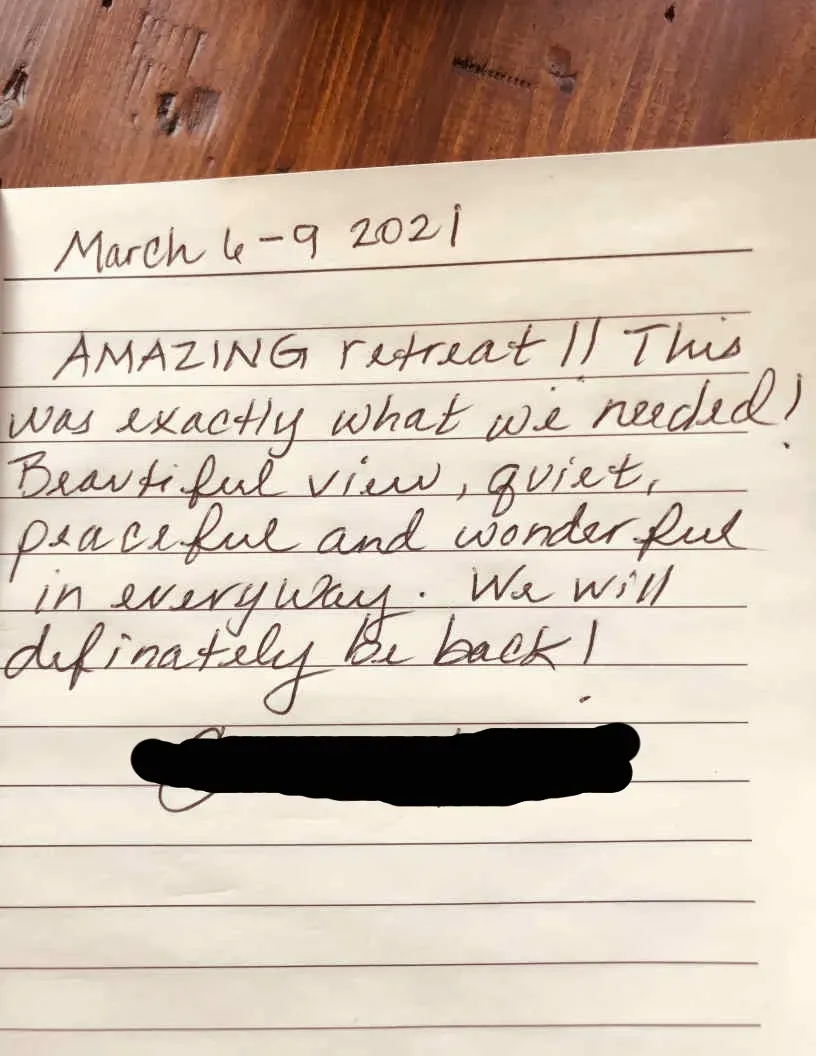 March 6-9 2021
AMAZING retreat!! This
was exactly what we needed!
Beautiful view, quiet,
peaceful and wonderful
in everyway. We will
definately be back!